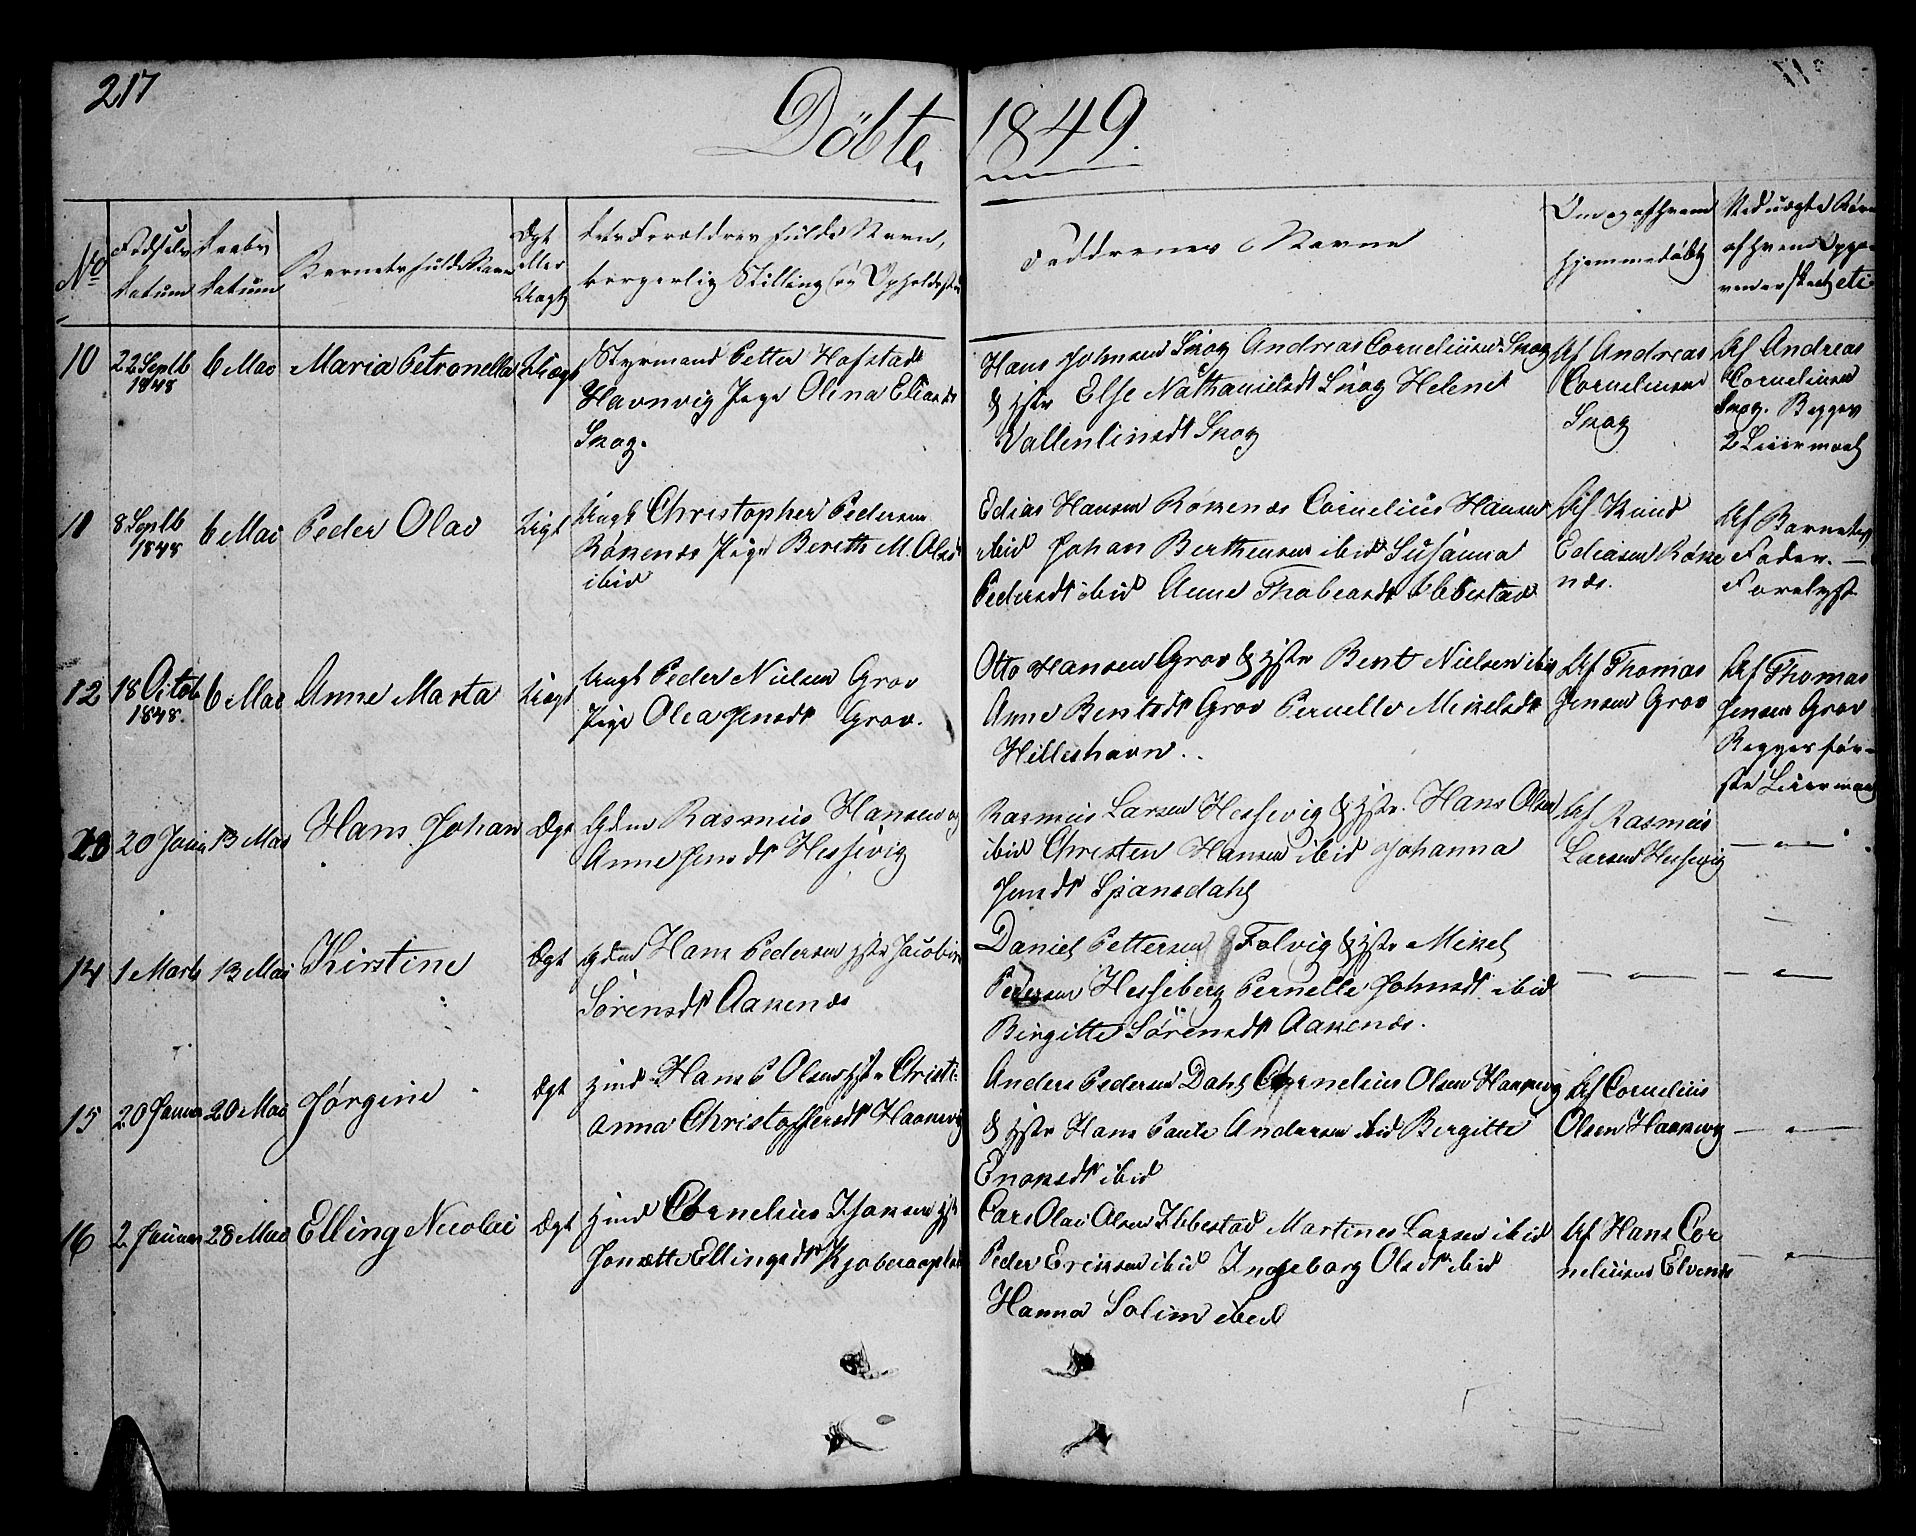 217
Döbte 1849.
No
Födsels Datum
Daabs Datum
Barnets fulde Navn
Ægt eller Uægt
Dets Forældres fulde Navn,
borgerlig Stilling og Opholdssted
Faddrenes Navne
Om og af hvem
hjemmedöbt
Ved uægte Börn
af hvem Opga-
ven er skeet etc
10 22 Septb 1848 6 Mai Maria Petronella Uægt
Styrmand Petter Hofstad
Havnvig Pige Olina Eliasdt
Skog.
Hans Johnsen Skog Andreas Corneliusen Skog
& Hstr Else Nathanielsdt Skog Helene
Vallentinsdt Skog
Af Andreas
Corneliusen
Skog
Af Andreas
Corneliusen
Skog. Begges
2 Leiermaal
11 8 Septb 1848 6 Mai Peder Olav Uægt
Ungk Christopher Pedersen
Rökenæs Pige Bereth M. Olsdt
ibid
Edias Hansen Rökenæs Cornelius Hansen
ibid Johan Berthensen ibid Susanna
Pedersdt ibid Anne Thobiasdt Ibbestad
Af Knud
Ediasen Röke
næs.
Af Barnets
Fader. —
Forelyst
12 18 Octob 1848. 6 Mai Anne Marta Uægt
Ungk Peder Nielsen Grov
Pige Olea Jensdt Grov.
Otto Hansen Grov & Hstr Bent Nielsen ibid
Anne Bentsdt Grov Pernelle Mikelsdt
Hilleshavn.
Af Thomas
Jensen Grov
Af Thomas
Jensen Grov
Begges för-
ste Leiermaal
13 20 Janu 13 Mai Hans Johan Ægt
Gdm Rasmus Hansen og
Anne Jensdt Hessevig
Rasmus Larsen Hessevig & Hstr. Hans Olsen
ibid Christen Hansen ibid Johanna
Jensdt Spansdahl
Af Rasmus
Larsen Hessevig
— " —
14 1 Marts 13 Mai Kirstine Ægt
Gdm Hans Pedersen Hstr Jacobine
Sörensdt Aakenæs
Daniel Pettersen Folvig & Hstr Mikel
Pedersen Hesseberg Pernelle Johnsdt ibid
Birgitte Sörensdt Aakenæs.
— " —
— " —
15 20 Januar 20 Mai Jörgine Ægt
Hmd Hans P Olsen Hstr Christi-
anna Christoffersdt Haakevig
Anders Pedersen Dahl Cornelius Olsen Haakevig
& Hstr Hans Paul Andersen ibid Bergitte
Enoksdt ibid
Af Cornelius
Olsen Haakevig
— " —
16 2 Januar 28 Mai Elling Nicolai Ægt
Hmd Cornelius Isaksen Hstr
Jonette Ellingsdt
Carl Olai Olsen Ibbestad Martines Larsen ibid
Peder Eriksen ibid Ingeborg Olsdt ibid
Hanna Solim ibid
Af Hans Cor
neliusen Elvenæs
— " —